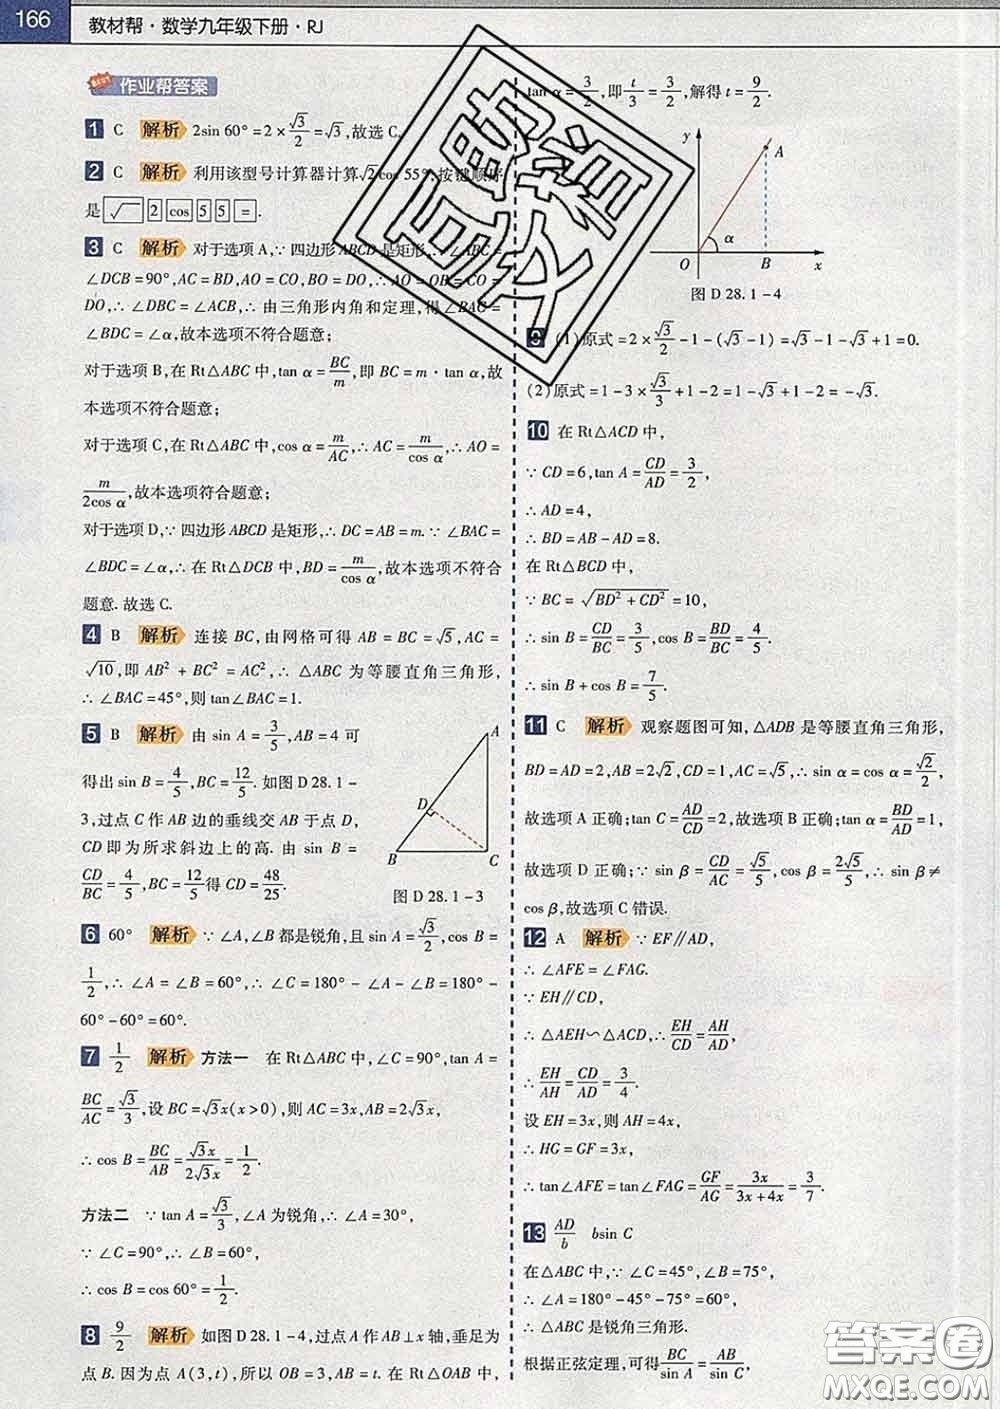 166
教材帮·数学九年级下册·RJ
BEST 作业帮答案
1 C 解析 2sin 60°=2×√3/2=√3,故选C.
2 C 解析 利用该型号计算器计算√2cos 55°,按键顺序
是 √ 2 cos 5 5 = .
3 C 解析 对于选项A,∵四边形ABCD是矩形,∴∠ABC=
∠DCB=90°,AC=BD,AO=CO,BO=DO,∴AO=OB=CO=
DO,∴∠DBC=∠ACB,∴由三角形内角和定理,得∠BAC=
∠BDC=∠α,故本选项不符合题意;
对于选项B,在Rt△ABC中,tan α=BC/m,即BC=m·tan α,故
本选项不符合题意;
对于选项C,在Rt△ABC中,cos α=m/AC,∴AC=m/cos α,∴AO=
m/2cos α,故本选项符合题意;
对于选项D,∵四边形ABCD是矩形,∴DC=AB=m.∵∠BAC=
∠BDC=∠α,∴在Rt△DCB中,BD=m/cos α,故本选项不符合
题意.故选C.
4 B 解析 连接BC,由网格可得AB=BC=√5,AC=
√10,即AB²+BC²=AC²,∴△ABC为等腰直角三角形,
∴∠BAC=45°,则tan∠BAC=1.
5 B 解析 由sin A=3/5,AB=4可
得出sin B=4/5,BC=12/5.如图D 28.1-
3,过点C作AB边的垂线交AB于点D,
CD即为所求斜边上的高.由sin B=
CD/BC=4/5,BC=12/5得CD=48/25.
A
D
B
C
图D 28.1-3
6 60° 解析 ∵∠A,∠B都是锐角,且sin A=√3/2,cos B=
1/2,∴∠A=∠B=60°,∴∠C=180°-∠A-∠B=180°-
60°-60°=60°.
7 1/2 解析 方法一 在Rt△ABC中,∠C=90°,tan A=
BC/AC=√3/3,设BC=√3x(x>0),则AC=3x,AB=2√3x,
∴cos B=BC/AB=√3x/2√3x=1/2.
方法二 ∵tan A=√3/3,∠A为锐角,∴∠A=30°,
∵∠C=90°,∴∠B=60°,
∴cos B=cos 60°=1/2.
8 9/2 解析 如图D 28.1-4,过点A作AB⊥x轴,垂足为
点B.因为点A(3,t),所以OB=3,AB=t.在Rt△OAB中,
tan α=3/2,即t/3=3/2,解得t=9/2.
y
A
α
O
B
x
图D 28.1-4
9 (1)原式=2×√3/2-1-(√3-1)=√3-1-√3+1=0.
(2)原式=1-3×√3/3+1-2=1-√3+1-2=-√3.
10 在Rt△ACD中,
∵CD=6,tan A=CD/AD=3/2,
∴AD=4,
∴BD=AB-AD=8.
在Rt△BCD中,
∵BC=√(BD²+CD²)=10,
∴sin B=CD/BC=3/5,cos B=BD/BC=4/5.
∴sin B+cos B=7/5.
11 C 解析 观察题图可知,△ADB是等腰直角三角形,
BD=AD=2,AB=2√2,CD=1,AC=√5,∴sin α=cos α=√2/2,
故选项A正确;tan C=AD/CD=2,故选项B正确;tan α=BD/AD=1,
故选项D正确;∵sin β=CD/AC=√5/5,cos β=2√5/5,∴sin β≠
cos β,故选项C错误.
12 A 解析 ∵EF∥AD,
∴∠AFE=∠FAG.
∵EH∥CD,
∴△AEH∽△ACD,∴EH/CD=AH/AD,
∴EH/AH=CD/AD=3/4.
设EH=3x,则AH=4x,
∴HG=GF=3x,
∴tan∠AFE=tan∠FAG=GF/AG=3x/(3x+4x)=3/7.
13 AD/b bsin C
在△ABC中,∵∠C=45°,∠B=75°,
∴∠A=180°-45°-75°=60°,
∴△ABC是锐角三角形.
根据正弦定理,可得BC/sin A=AB/sin C,
答案圈
MXQE.COM